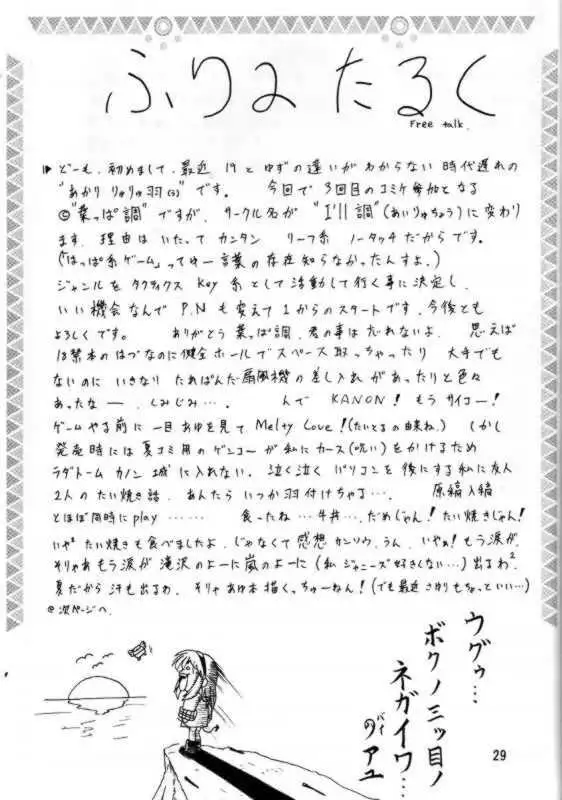 ふりーたるく
Free talk.
どーも、初めまして、最近 19とゆずの違いがわからない時代遅れの
"あかり りゅりゅ羽(3)"です。 今回で3回目のコミケ参加となる
©"葉っぱ調"ですが、サークル名が "I'll調"(あいりゅちょう)に変わり
ます。理由は いたって カンタン リーフ系 ノータッチだからです。
(「はっぱ系ゲーム」ってゆー言葉の存在知らなかったんすよ。)
ジャンルを タクティクス Key 系として活動して行く事に決定し、
いい機会なんで P.N も変えて 1からのスタートです。今後とも
よろしくです。 ありがとう 葉っぱ調、君の事は忘れないよ、 思えば
18禁本のはずなのに健全ホールでスペース取っちゃったり 大手でも
ないのに いきなり たれぱんだ扇風機の差し入れがあったりと色々
あったなー、しみじみ…。 んで KANON! もうサイコー!
ゲームやる前に一目あゆを見て、Melty Love!(たいとるの由来ね。) しかし
発売時には夏コミ用のゲンコーが私にカース(呪い)をかけるため
ラダトーム カノン 城に入れない。泣く泣く パソコンを後にする私に友人
2人の たい焼き話、あんたら いつか羽付けちゃる…。 原稿入稿
とほぼ同時にplay …… 食ったね…牛丼…だめじゃん!たい焼きじゃん!
いや² たい焼きも食べましたよ、じゃなくて感想 カンソウ、うん、いやぁ!もう涙が、
そりゃあもう涙が 滝沢のよーに嵐のよーに(私 ジャニーズ好きくない…)出るわ²
夏だから 汗も出るわ、そりゃ あゆ本描くっちゅーねん!(でも最近 さゆりもちょっといい…)
@次ページへ
ウグゥ…
ボクノ三ッ目ノ
ネガイワ…
のアユ
29